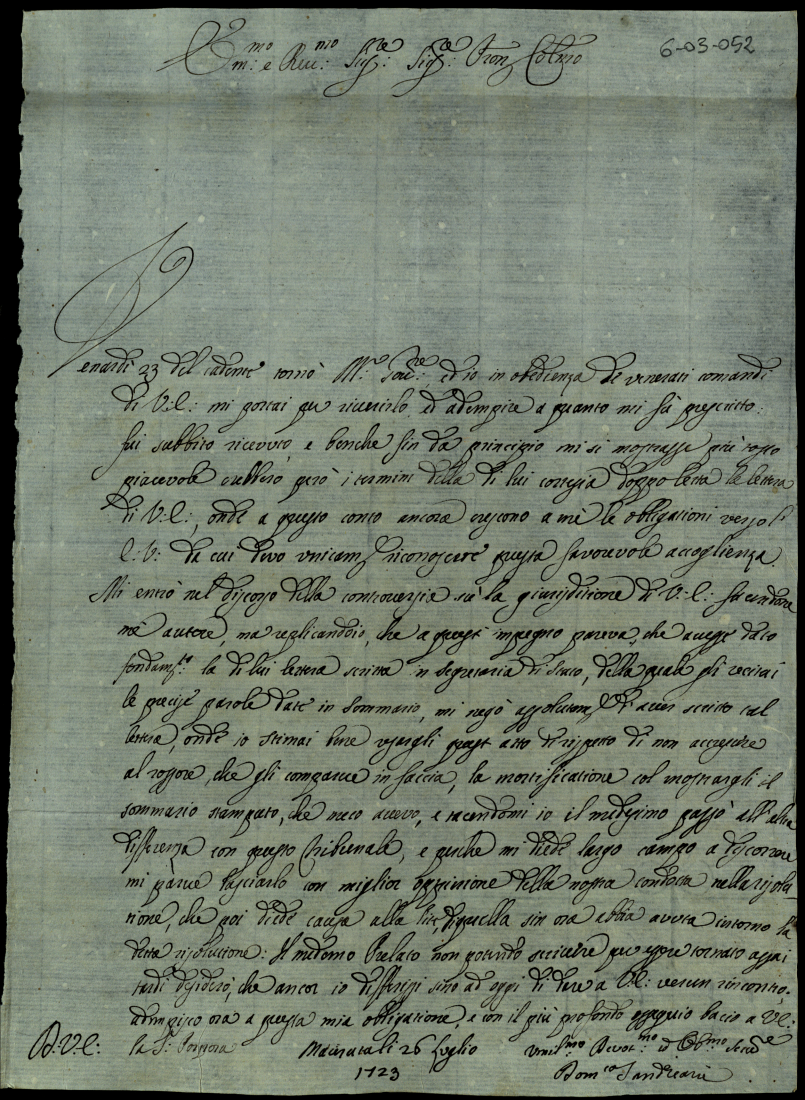 6-03-052
Em:mo e Reu:mo Sig:re Sig:re Pron Colmo
Venardì 23 del cadente tornò M:r Gou:re, ed io in obedienza de venerati comandi
di V:E: mi portai per riuerirlo, ed adempire a quanto mi fù prescritto:
fui subbito riceuuto, e benche sin da principio mi si mostrasse più tosto
piaceuole crebbero però i termini della di lui cortesia doppo letta la lettera
di V:E:, onde a questo conto ancora crescono a mè le obligationi verso l'
E:V: da cui deuo unicam:te riconoscere questa fauoreuole accoglienza.
Mi entrò nel discorso della controuersia sù la giurisditione di V:E: facendone
mè autore, ma replicandoio, che a quest' impegno pareua, che auesse dato
fondam:to la di lui lettera scritta in Segretaria di Stato, della quale gli recitai
le precise parole date in sommario, mi negò assolutam:te d'auer scritto tal
lettera, onde io stimai bene usargli quest' atto di rispetto di non accrescere
al rossore, che gli comparue in faccia, la mortificatione col mostrargli il
sommario stampato, che meco aueuo, e tacendomi io il medesimo passò all' altra
differenza con questo Tribunale, e perche mi diede largo campo a discorrere
mi parue lasciarlo con miglior oppinione della nostra condotta nella risolu-
tione, che poi diede causa alla lite, di quella sin ora abbia auuta intorno la
detta risolutione: Il medemo Prelato non potendo scriuere per essere tornato assai
tardi desiderò, che ancor io differissi sino ad oggi di dare a V.E: uerun rincontro.
adempisco ora a questa mia obligatione, e con il più profondo ossequio bacio a V:E:
la S: Porpora Macerata li 26 Luglio
D:V:E: Vmil:mo Deuot:mo ed Obl:mo Seru:re
1723
Dom:co